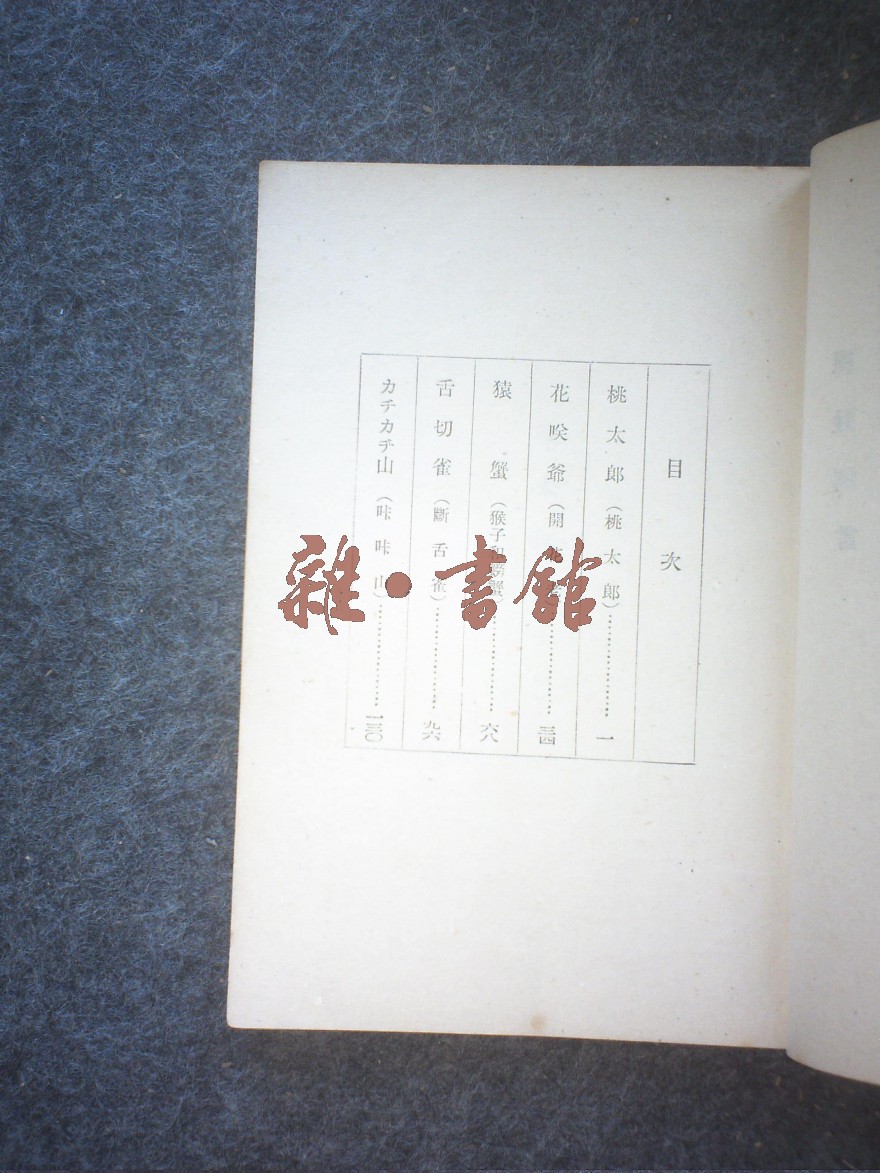 目次
桃太郎（桃太郎）…………一
花咲爺（開
三四
猿蟹（猴子和螃蟹）…………六八
舌切雀（斷舌雀）…………九六
カチカチ山（咔咔山）…………一三〇
雜·書館